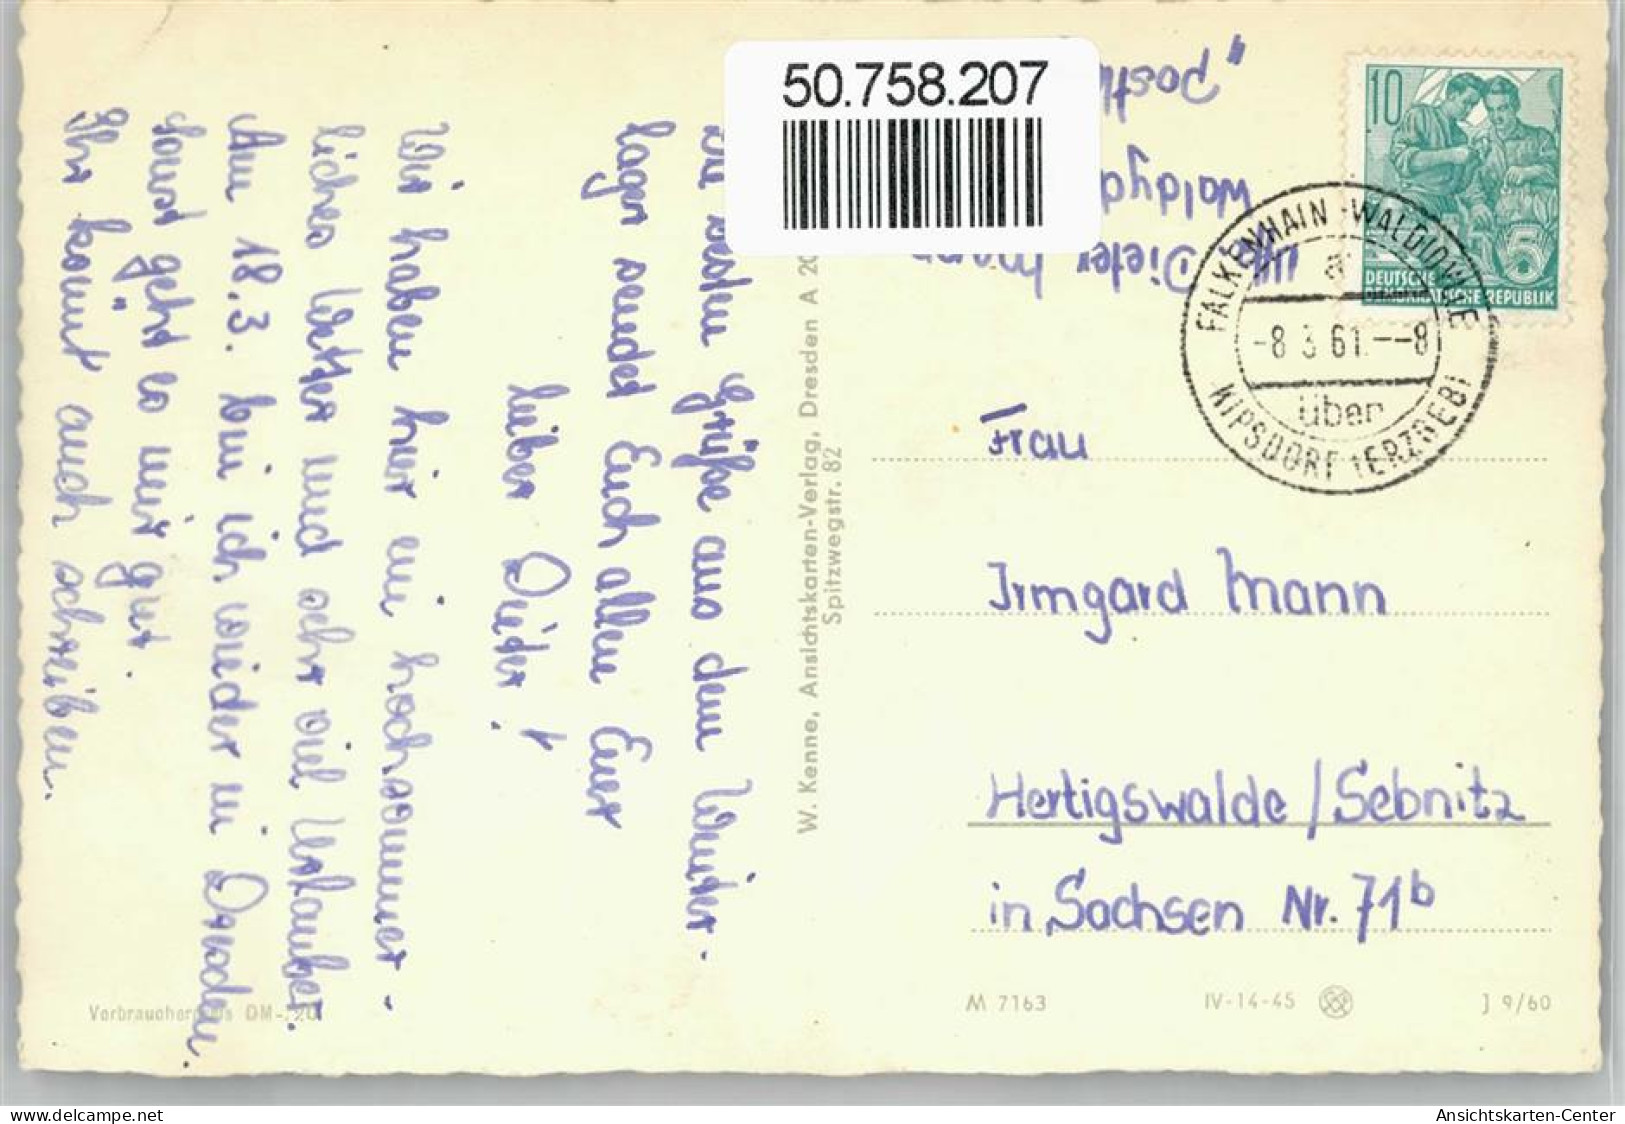 50.758.207
10
DEUTSCHE
DEMOKRATISCHE REPUBLIK
5
FALKENHAIN-WALDIDYLLE
a
-8.3.61.--8
über
KIPSDORF (ERZGEB)
Dieter Mann
"Post
Frau
Irmgard Mann
Hertigswalde/Sebnitz
in Sachsen Nr. 71b
Wir haben hier ein hochsommer-
liches Wetter und sehr viel Urlauber.
Am 18.3. bin ich wieder in Dresden.
Sonst geht es mir gut.
Ihr könnt auch schreiben.
Grüße aus dem Winter-
lager sendet Euch allen Euer
lieber Dieter!
W. Kenne, Ansichtskarten-Verlag, Dresden A 20
Spitzwegstr. 82
Verbraucherpreis DM -,20
M 7163
IV-14-45
J 9/60
delcampe.net
Ansichtskarten-Center